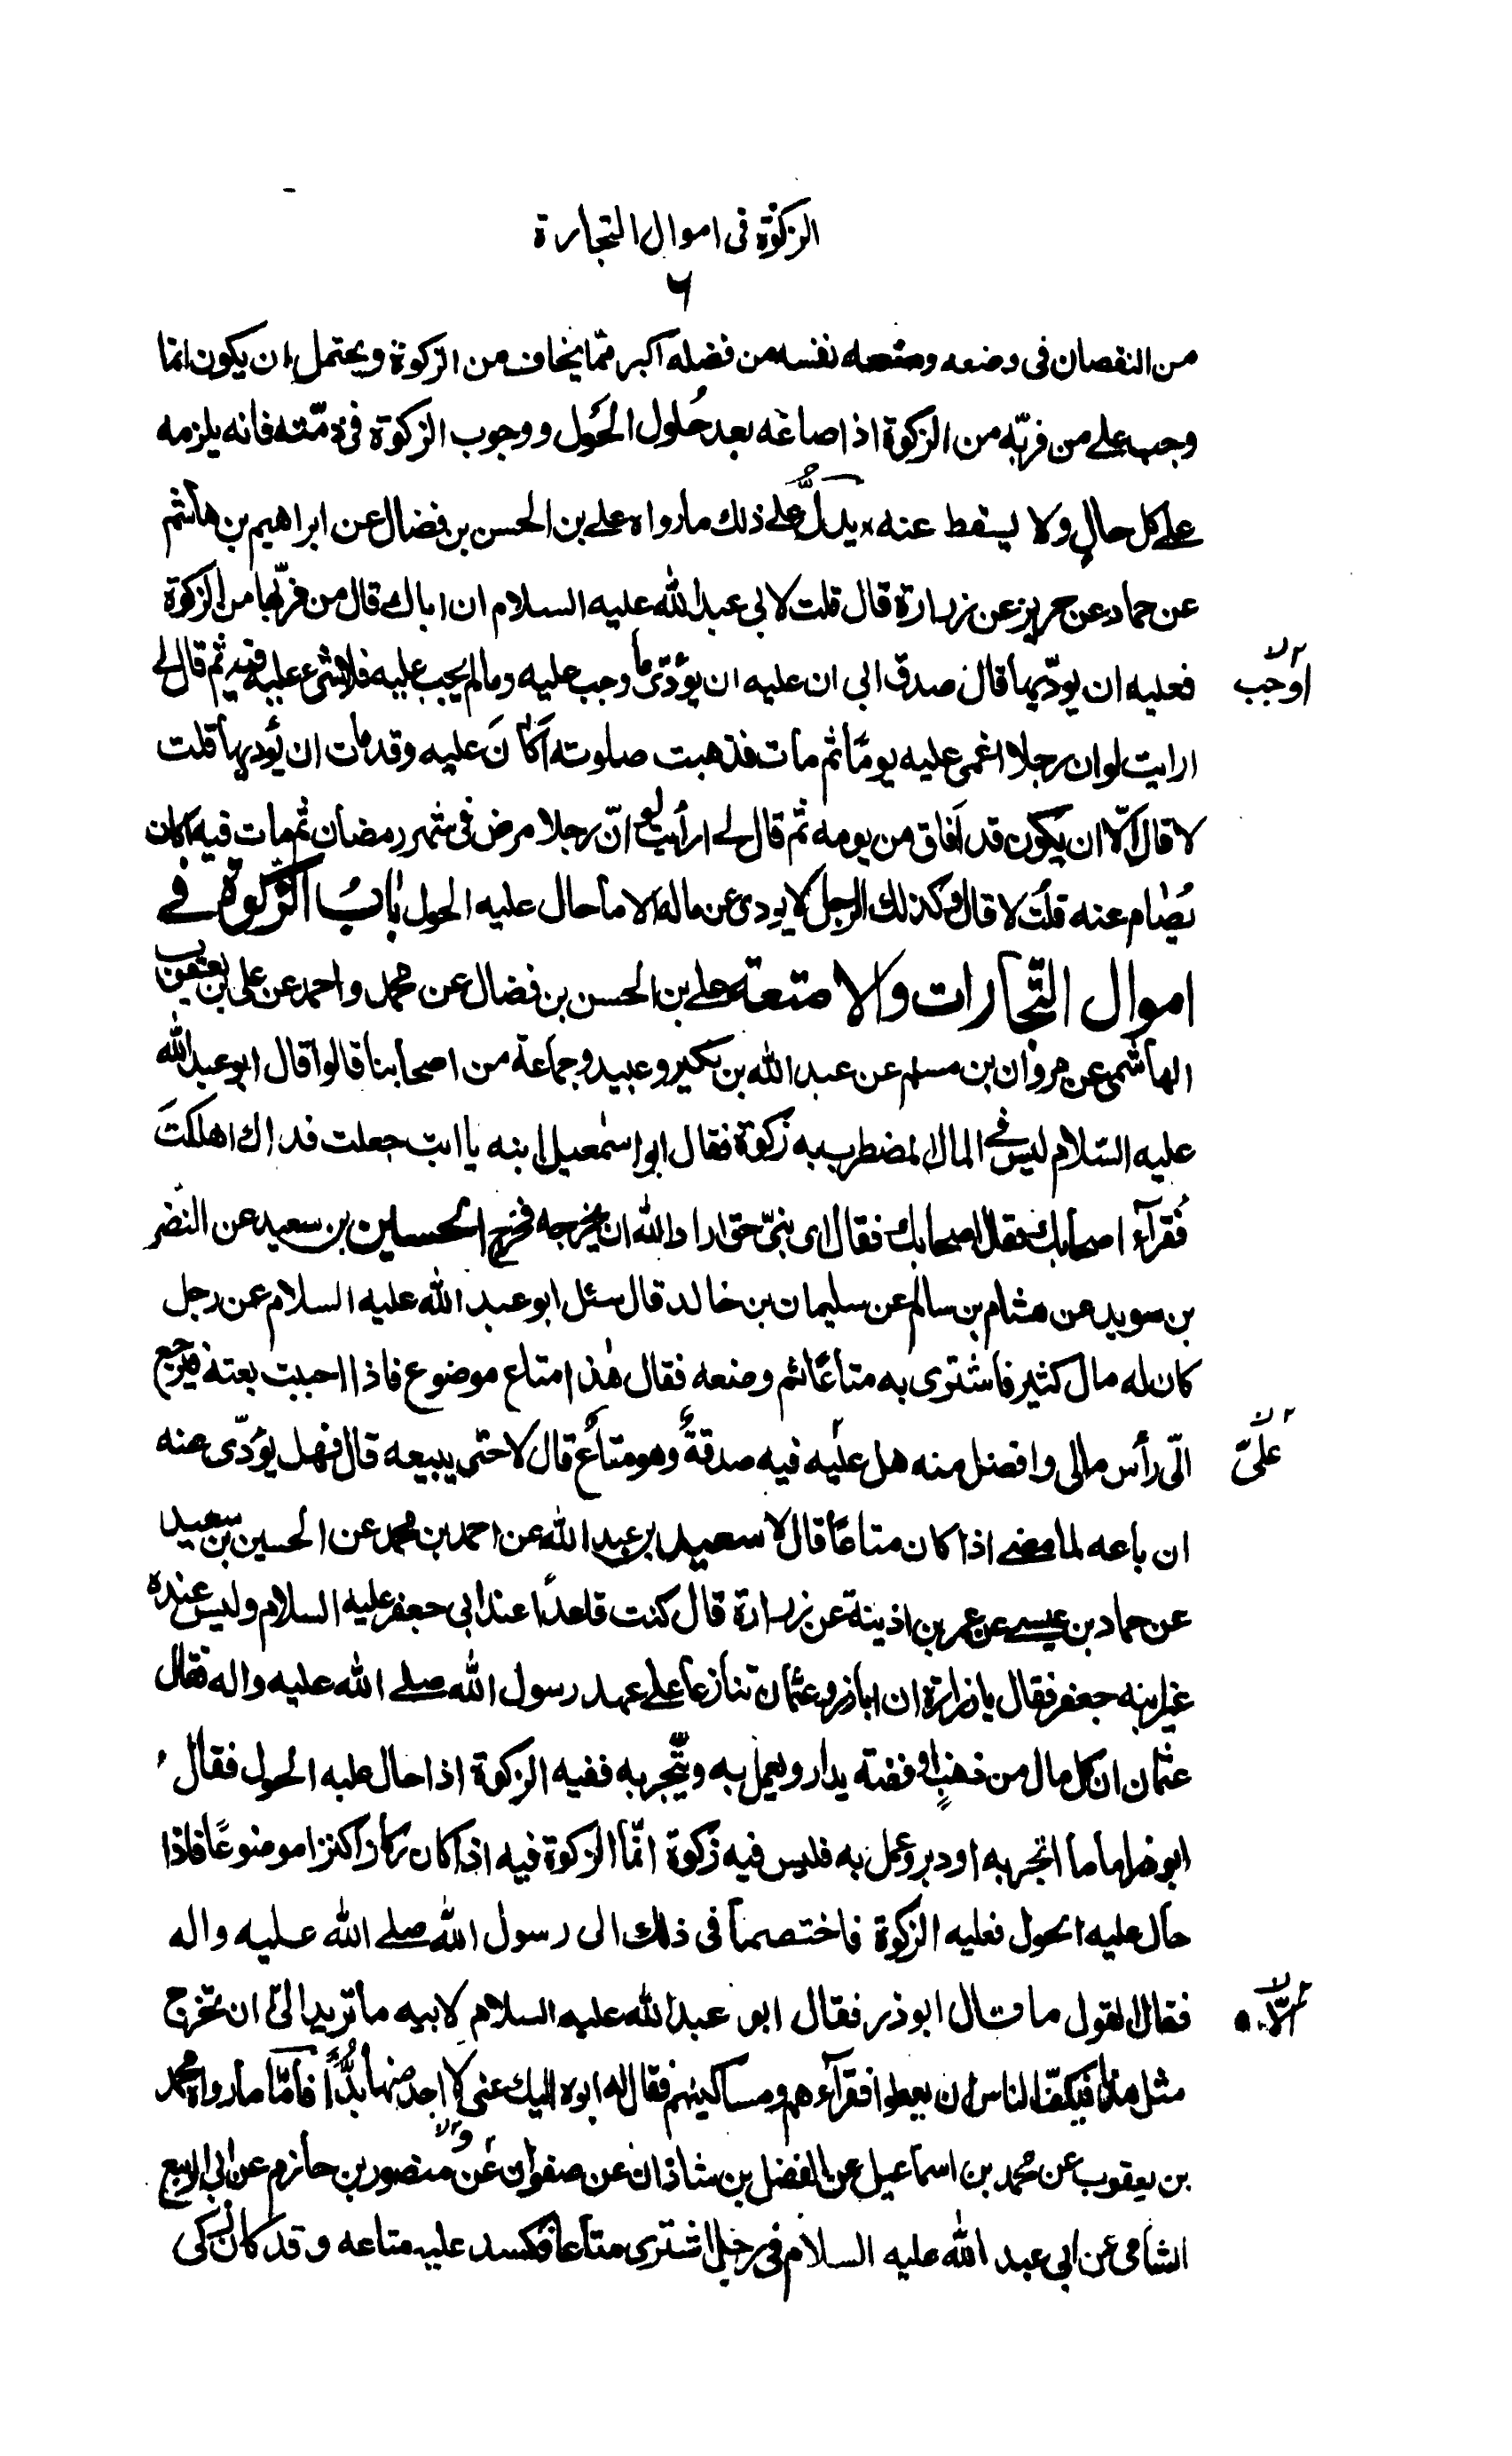 الزكوة فى اموال التجارة
٦
من النقصان فى وضعه ومنعه نفسه من فضله اكبر ممّا يخاف من الزكوة ويحتمل ان يكون انما
وجب على من فرّبه من الزكوة اذا صاغه بعد حُلول الحَول ووجوب الزكوة فى ذمّته فانه يلزمه
على كل حالٍ ولا يسقط عنه يدلُّ على ذلك ما رواه على بن الحسن بن فضال عن ابراهيم بن هاشم
عن حماد عن حريز عن زرارة قال قلت لابى عبد الله عليه السلام ان اباك قال من فرّبها من الزكوة
فعليه ان يودّيها قال صدق ابى ان عليه ان يؤدّى ما وجب عليه وما لم يجب عليه فلا شىء عليه فيه ثم قال لى
اوجب
ارايت لو ان رجلا اغمى عليه يومًا ثم مات فذهبت صلوته اكَانَ عليه وقد مات ان يؤديها قلت
لا قال الّا ان يكون قد افاق من يومه ثم قال لى ارأيت لو انّ رجلا مرض فى شهر رمضان ثم مات فيه اكان
يُصام عنه قلت لا قال وكذلك الرجل لا يودى عن ماله الا ما حال عليه الحول بابُ الزكوة فى
اموال التّجارات والامتعة على بن الحسن بن فضال عن محمد واحمد عن على بن يعقوب
الهاشمى عن مروان بن مسلم عن عبد الله بن بكير وعبيد وجماعة من اصحابنا قالوا قال ابو عبد الله
عليه السّلام ليس فى المال المضطرب به زكوة فقال ابو اسمعيل ابنه يا ابت جعلت فداك اهلكتَ
فُقرآء اصحابك فقال اى بنىّ حق اراد الله ان يخرجه فخرج الحسين بن سعيد عن النَضر
بن سويد عن هشام بن سالم عن سليمان بن خالد قال سئل ابو عبد الله عليه السلام عن رجل
كان له مال كثير فاشترى به متاعًا ثم وضعه فقال هذا متاع موضوع فاذا احببت بعته فيرجع
الىّ رأس مالى وافضل منه هل عليه فيه صدقةٌ وهو متاعٌ قال لا حتى يبيعه قال فهل يؤدّى عنه
علىّ
ان باعه لما مضى اذا كان متاعًا قال لا سعيد بن عبد الله عن احمد بن محمد عن الحسين بن سعيد
عن حماد بن عيسى عن عمر بن اذينة عن زرارة قال كنت قاعدًا عند ابى جعفر عليه السلام وليس عنده
غير ابنه جعفر فقال يا زرارة ان اباذر وعثمان تنازعا على عهد رسول الله صلى الله عليه واله فقال
عثمان ان كل مال من ذهبٍ او فضة يدار ويعمل به ويتّجر به ففيه الزكوة اذا حال عليه الحول فقال
ابوذر اما ما اتّجر به او دبر وعمل به فليس فيه زكوة انّما الزكوة فيه اذا كان ركازا كنزا موضوعًا فاذا
حال عليه الحول فعليه الزكوة فاختصما فى ذلك الى رسول الله صلى الله عليه واله
فقال القول ما قال ابوذر فقال ابو عبد الله عليه السلام لابيه ما تريد الىّ ان تخرج
مثل هذا فيكفّ الناس ان يعطوا فقرآءهم ومساكينهم فقال له ابوه اليك عنى لا اجد منها بُدًّا فأمّا ما رواه محمد
بن يعقوب عن محمد بن اسماعيل عن الفضل بن شاذان عن صفوان عن منصور بن حازم عن ابى الربيع
الشامى عن ابى عبد الله عليه السلام فى رجل اشترى متاعا فكسد عليه متاعه وقد كان زكى